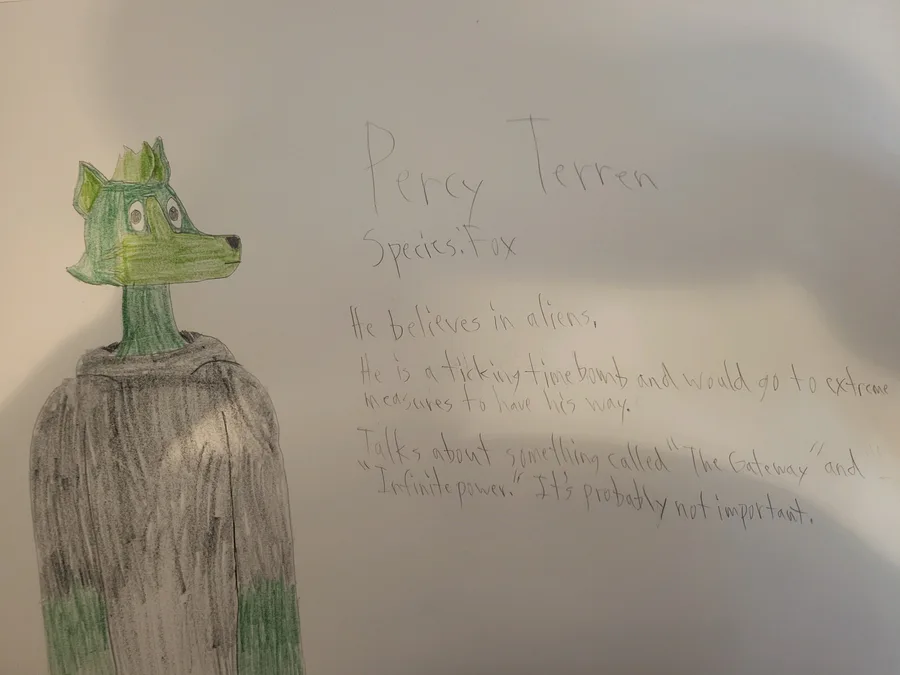 Percy Terren
Species: Fox
He believes in aliens.
He is a ticking timebomb and would go to extreme
measures to have his way.
Talks about something called "The Gateway" and
"Infinite power." It's probably not important.